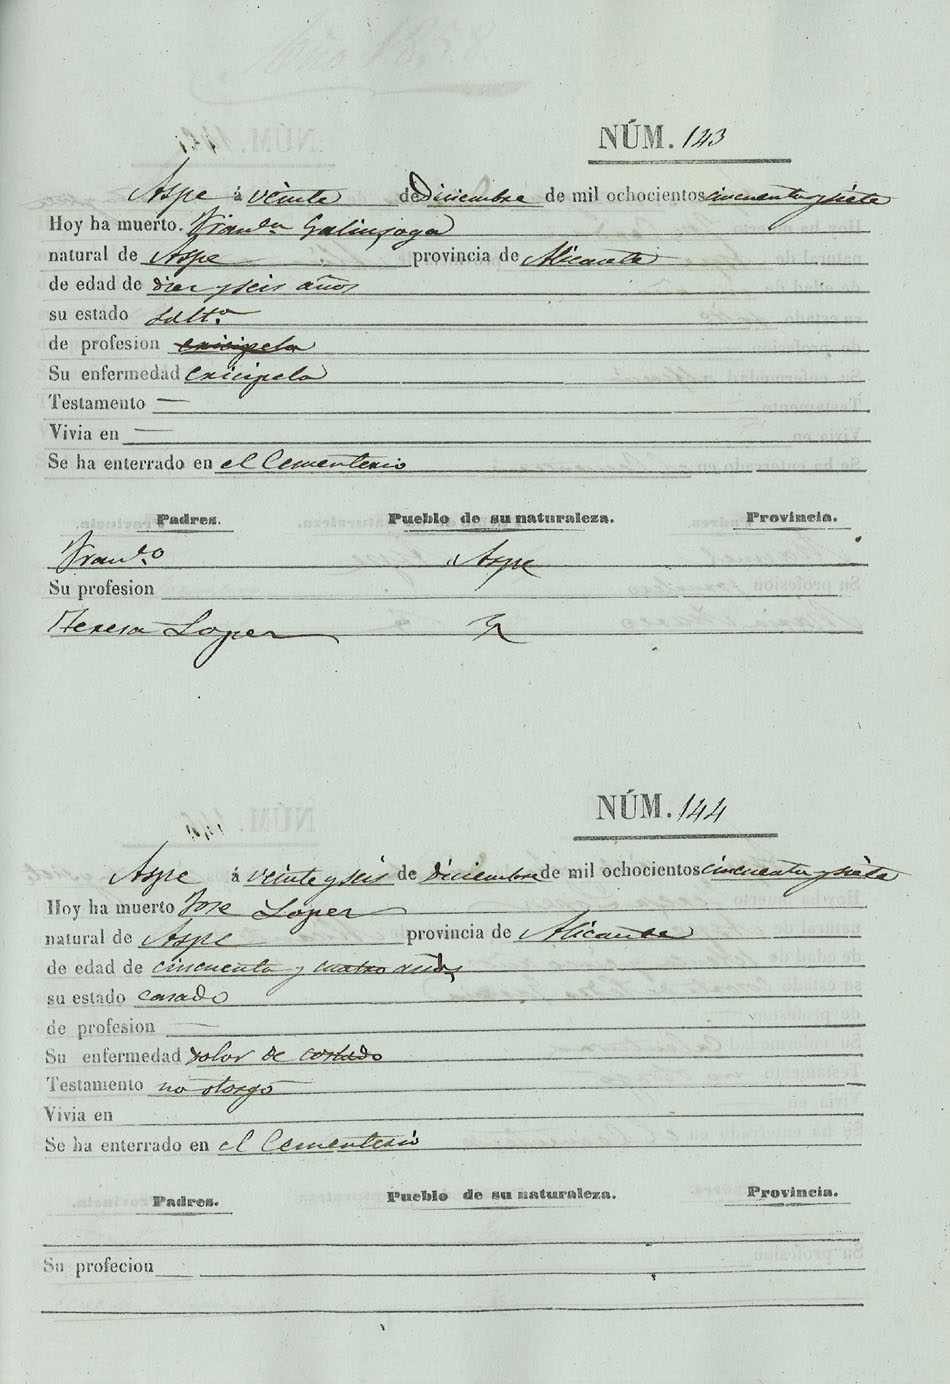 NÚM. 143
Aspe á veinte de Diciembre de mil ochocientos cincuenta y siete
Hoy ha muerto. Franca Galinzoga
natural de Aspe provincia de Alicante
de edad de diez y seis años
su estado solta
de profesion erisipela
Su enfermedad erisipela
Testamento —
Vivia en —
Se ha enterrado en el Cementerio
Padres. Pueblo de su naturaleza. Provincia.
Franco Aspe
Su profesion
Teresa Lopez
NÚM. 144
Aspe á veinte y seis de Diciembre de mil ochocientos cincuenta y siete
Hoy ha muerto Jose Lopez
natural de Aspe provincia de Alicante
de edad de cincuenta y cuatro años
su estado casado
de profesion —
Su enfermedad dolor de costado
Testamento no otorgó
Vivia en
Se ha enterrado en el Cementerio
Padres. Pueblo de su naturaleza. Provincia.
Su profecion